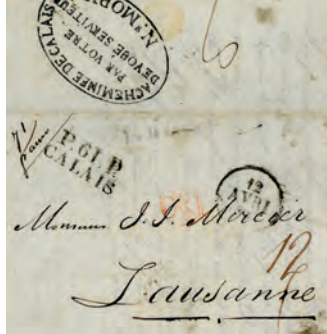 ACHEMINÉE DE CALAIS
PAR VOTRE
DEVOUÉ SERVITEUR
P. 61. P
CALAIS
12
AVRI
Monsieur J. J. Mercier
12
Lausanne